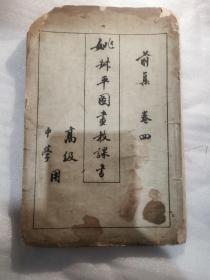 前集 卷四
姚琳平圖畫教課書
高級
中學用